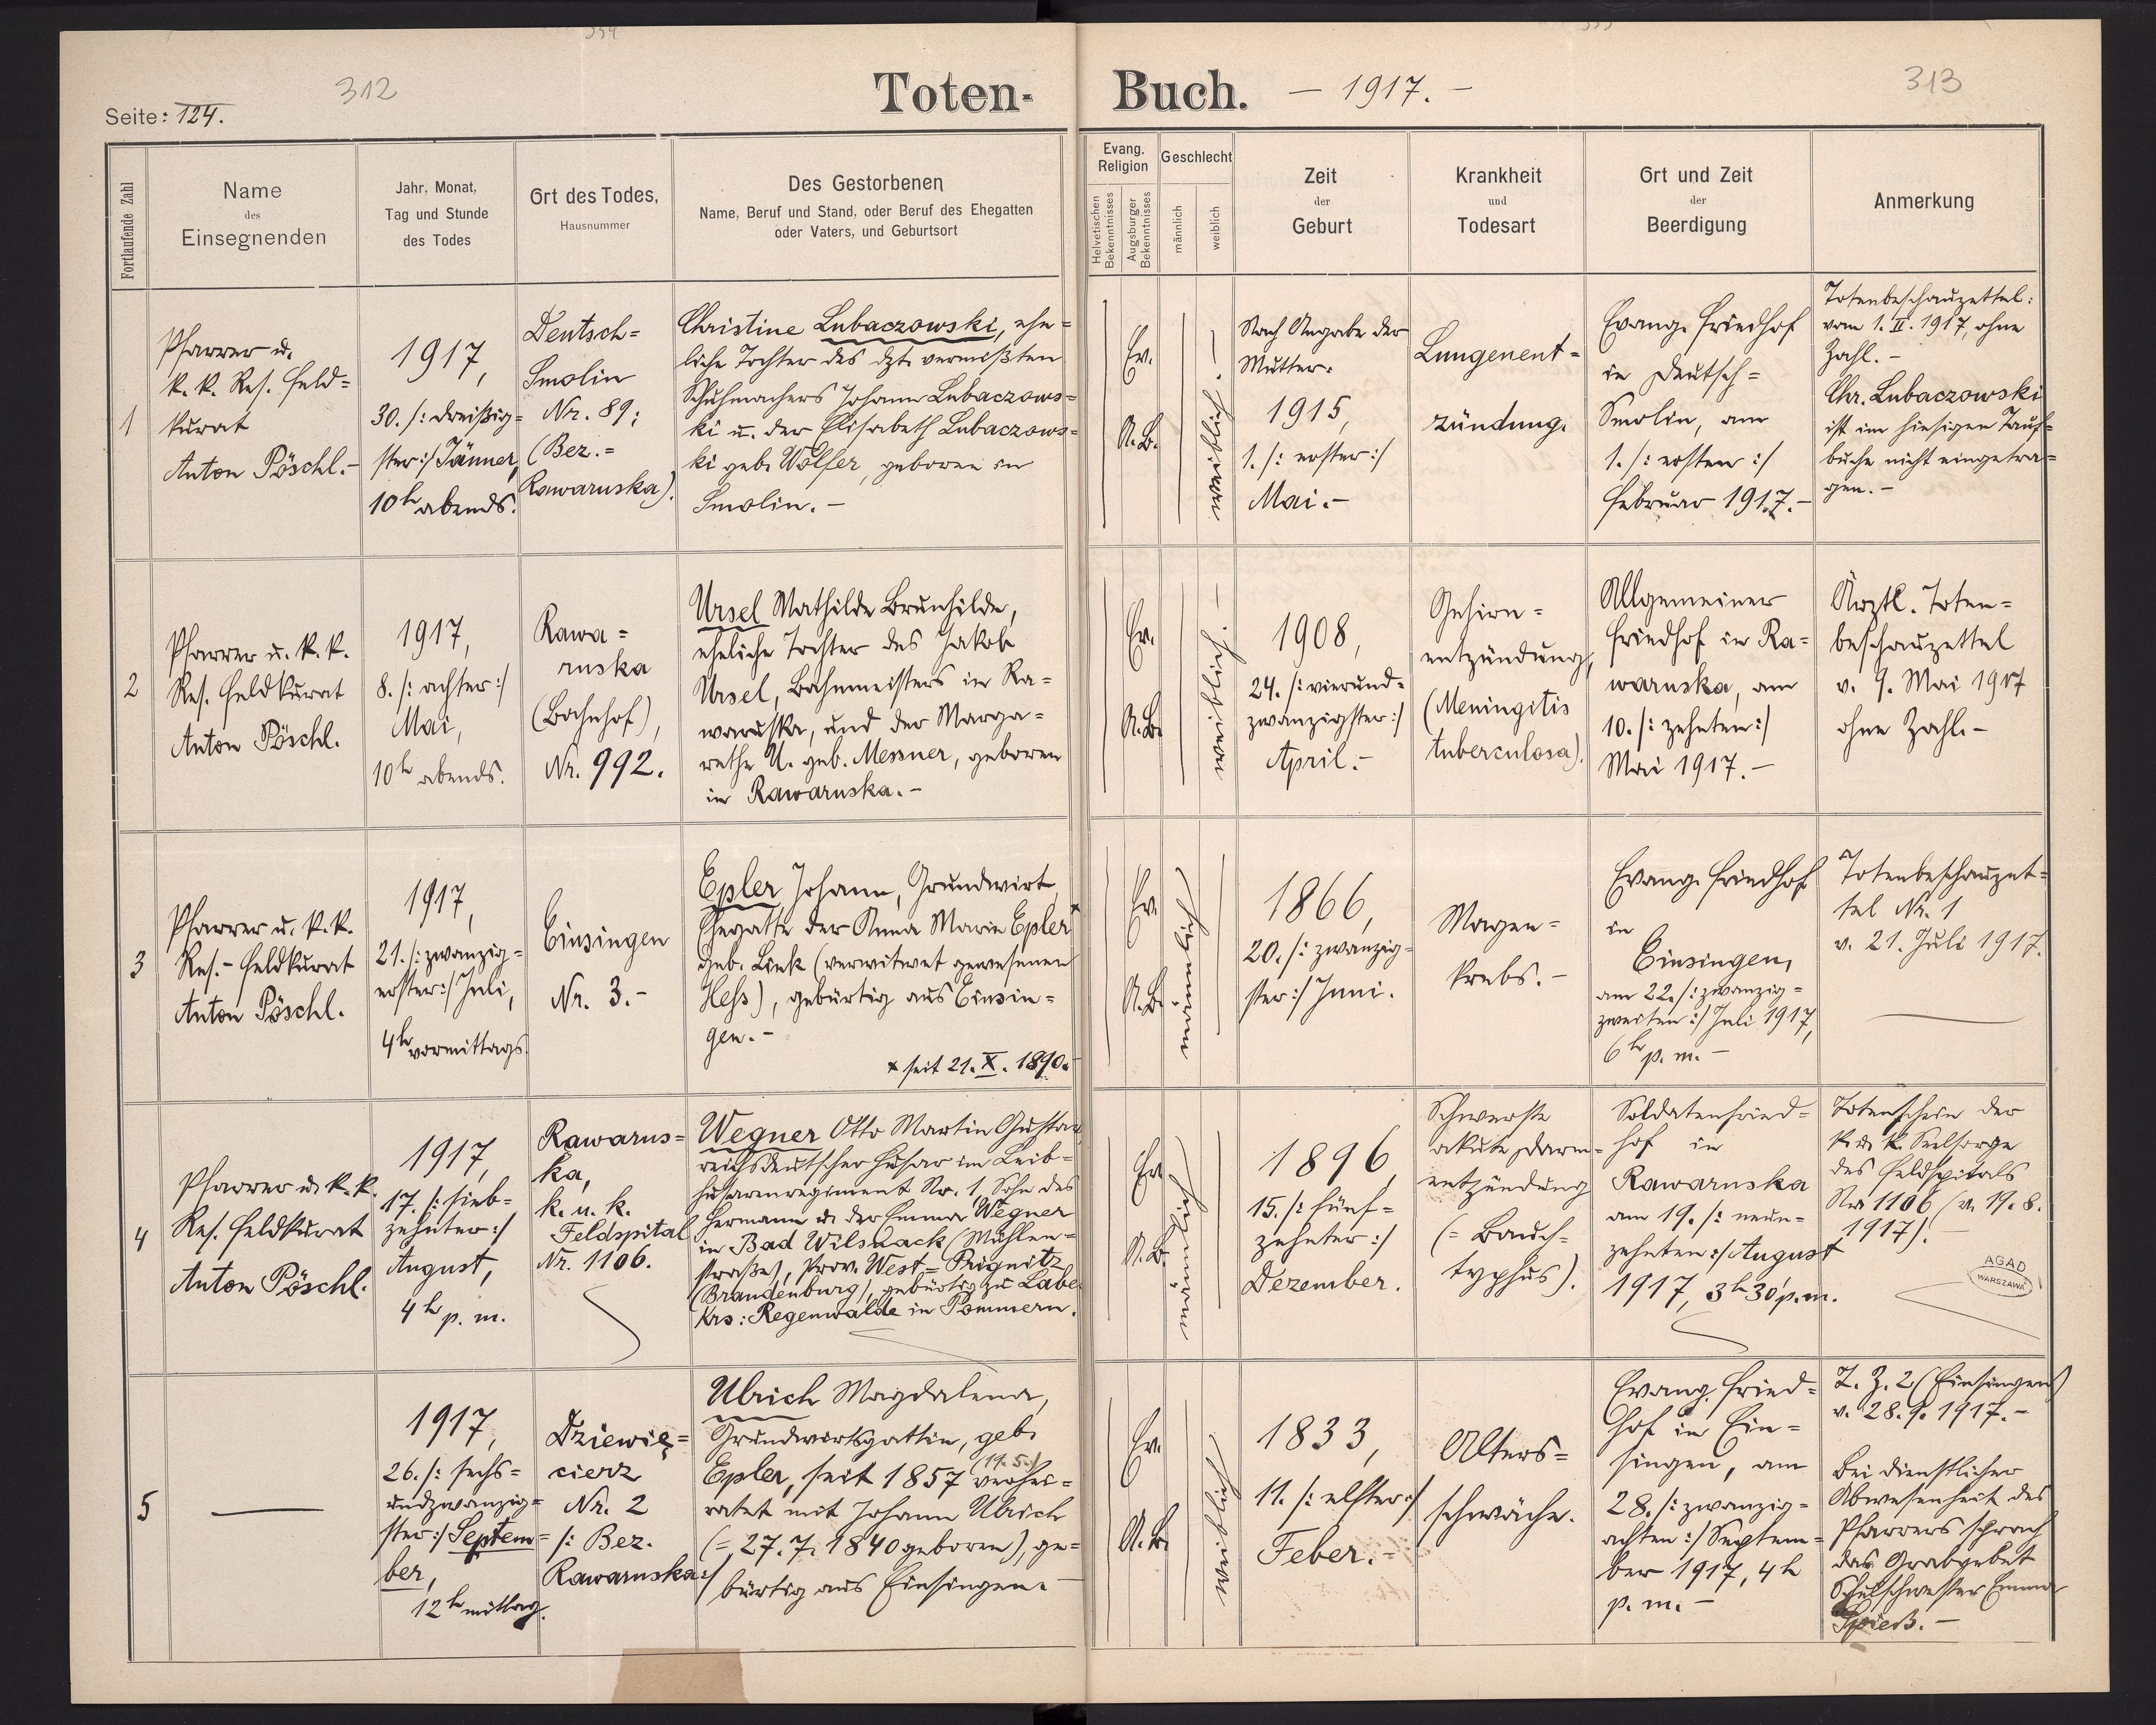 354
355
312
Seite: 124.
Toten-
Buch. — 1917. —
313
Fortlaufende Zahl
Name
des
Einsegnenden
Jahr, Monat,
Tag und Stunde
des Todes
Ort des Todes,
Hausnummer
Des Gestorbenen
Name, Beruf und Stand, oder Beruf des Ehegatten
oder Vaters, und Geburtsort
Evang.
Religion
Helvetischen
Bekenntnisses
Augsburger
Bekenntnisses
Geschlecht
männlich
weiblich
Zeit
der
Geburt
Krankheit
und
Todesart
Ort und Zeit
der
Beerdigung
Anmerkung
1
Pfarrer u.
k. k. Res. Feld=
kurat
Anton Pöschl.-
1917,
30. /: dreißig=
ster:/ Jänner,
10h abends.
Deutsch=
Smolin
Nr. 89;
(Bez.=
Rawaruska).
Christine Lubaczowski, ehe=
liche Tochter des dzt. vermißten
Schuhmachers Johann Lubaczows=
ki u. der Elisabeth Lubaczows=
ki geb. Wolfer, geboren in
Smolin. -
Ev.
A.B.
weiblich. -
Nach Angabe der
Mutter:
1915,
1. /: erster:/
Mai.-
Lungenent=
zündung.
Evang. Friedhof
in Deutsch=
Smolin, am
1. /: ersten :/
Februar 1917.-
Totenbeschauzettel:
vom 1. II. 1917, ohne
Zahl.-
Chr. Lubaczowski
ist im hiesigen Tauf=
buche nicht eingetra=
gen.-
2
Pfarrer u. k. k.
Res. Feldkurat
Anton Pöschl.
1917,
8. /: achter:/
Mai,
10h abends.
Rawa=
ruska
(Bahnhof),
Nr. 992.
Ursel Mathilde Brunhilde,
eheliche Tochter des Jakob
Ursel, Bahnmeisters in Ra=
waruska, und der Marga=
rethe U. geb. Messner, geboren
in Rawaruska.-
Ev.
A.B.
weiblich. -
1908,
24. /: vierund=
zwanzigster:/
April.-
Gehirn=
entzündung,
(Meningitis
tuberculosa).
Allgemeiner
Friedhof in Ra=
waruska, am
10. /: zehnten:/
Mai 1917.-
Ärztl. Toten=
beschauzettel
v. 9. Mai 1917
ohne Zahl.-
3
Pfarrer u. k. k.
Res.- Feldkurat
Anton Pöschl.
1917,
21. /: zwanzig=
erster:/ Juli,
4h vormittags.
Einsingen
Nr. 3.-
Epler Johann, Grundwirt,
Ehegatte der Anna Maria Epler*
geb. Link (verwitwet gewesenen
Hess), gebürtig aus Einsin=
gen.-
* seit 21. X. 1890.
Ev.
A.B.
männlich
1866,
20. /: zwanzig=
ster:/ Juni.
Magen=
krebs.-
Evang. Friedhof
in
Einsingen,
am 22. /: zwanzig=
zweiten:/ Juli 1917,
6h p. m.-
Totenbeschauzet=
tel Nr. 1
v. 21. Juli 1917.
4
Pfarrer u. k. k.
Res. Feldkurat
Anton Pöschl.
1917,
17. /: sieb=
zehnter:/
August,
4h p. m.
Rawarus=
ka,
k. u. k.
Feldspital
Nr. 1106.
Wegner Otto Martin Gustav
reichsdeutscher Husar im Leib=
husarenregiment Nr. 1, Sohn des
Hermann u. der Emma Wegner
in Bad Wilsnack (Mühlen=
straße), Prov. West=Prignitz
(Brandenburg), gebürtig zu Labe
Krs: Regenwalde in Pommern.
Ev.
A.B.
männlich
1896,
15. /: fünf=
zehnter:/
Dezember.
Schwerste
akute Darm=
entzündung
(= Bauch=
typhus).
Soldatenfried=
hof in
Rawaruska
am 19. /: neun=
zehnten:/ August
1917, 3h 30' p.m.
Totenschein der
k. u. k. Seelsorge
des Feldspitals
Nr. 1106 (v. 19. 8.
1917).
AGAD
WARSZAWA
5
1917,
26. /: sechs=
undzwanzig=
ster:/ Septem=
ber,
12h mittag.
Dziewię=
cierz
Nr. 2
/: Bez.
Rawaruska:/
Ulrich Magdalena,
Grundwirtsgattin, geb.
(19. 5.)
Epler, seit 1857 verhei=
ratet mit Johann Ulrich
(= 27. 7. 1840 geboren), ge=
bürtig aus Einsingen.-
Ev.
A.B.
weiblich
1833,
11. /: elfter:/
Feber.-
Alters=
schwäche.
Evang. Fried=
hof in Ein=
singen, am
28. /: zwanzig=
achten:/ Septem=
ber 1917, 4h
p. m.-
T. Z. 2 (Einsingen)
v. 28. 9. 1917.-
Bei dienstlicher
Abwesenheit des
Pfarrers sprach
das Grabgebet
Schulschwester Emma
Spieß.-